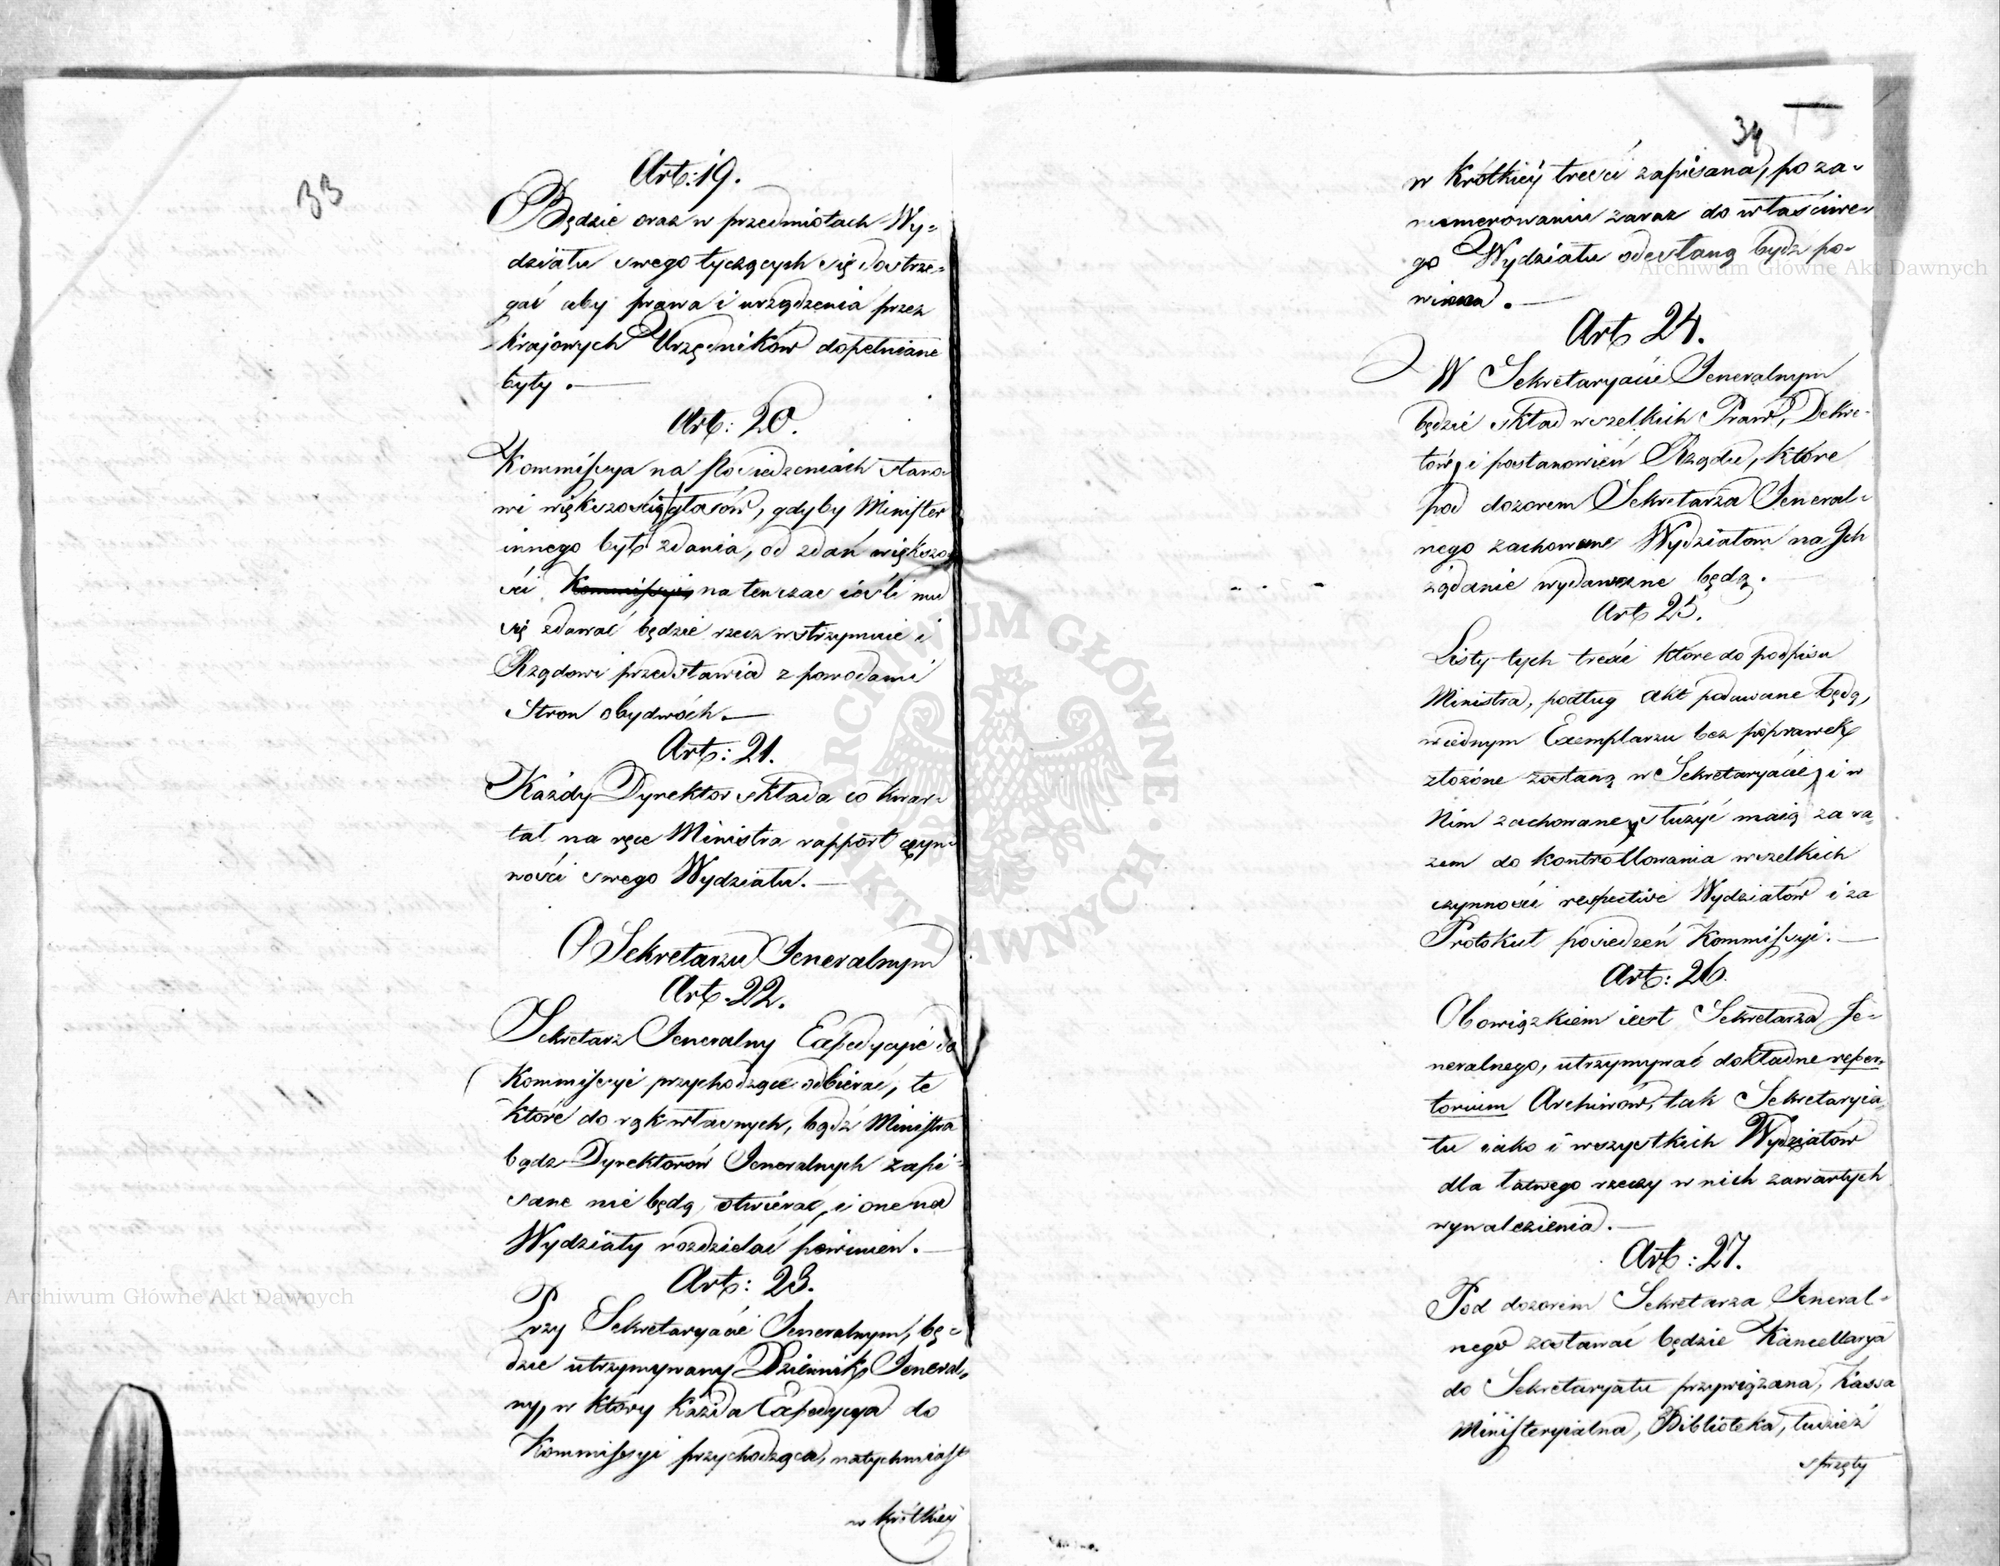 33
Art: 19.
Będzie oraz w przedmiotach Wy-
działu swego tyczących się dostrze-
gać aby prawa i urządzenia przez
krajowych Urzędników dopełniane
były. —
Art: 20.
Kommissya na Posiedzeniach stano-
wi większością głosów, gdyby Minister
innego był zdania, od zdań większo-
ści Kommissyi, na ten czas ieśli mu
się zdawać będzie rzecz wstrzymuie i
Rządowi przedstawia z powodami
Stron obydwóch. —
Art: 21.
Każdy Dyrektor składa co kwar-
tał na ręce Ministra rapport czyn-
ności swego Wydziału. —
O Sekretarzu Jeneralnym
Art. 22.
Sekretarz Jeneralny Expedycyie do
Kommissyi przychodzące odbierać, te
które do rąk własnych, bądź Ministra
bądz Dyrektorów Jeneralnych zapi-
sane nie będą, otwierac, i one na
Wydziały rozdzielać powinien. —
Art: 23.
Przy Sekretaryacie Jeneralnym, bę-
dzie utrzymywany Dziennik Jeneral-
ny, w który każda Expedycya do
Kommissyi przychodząca, natychmiast
w krótkiey
34
w krótkiéy treści zapisana, po za-
numerowaniu zaraz do właściwe-
go Wydziału odesłaną bydz po-
winna. —
Art 24.
W Sekretaryacie Jeneralnym
będzie skład wszelkich Praw, Dekre-
tów, i postanowień Rządu, które
pod dozorem Sekretarza Jeneral-
nego zachowane Wydziałom na Ich
żądanie wydawane będą.
Art 25.
Listy tych treści które do podpisu
Ministra, podług akt podawane będą,
w iednym Exemplarzu bez poprawek
złożone zostaną w Sekretaryacie, i w
Nim zachowane, służyć maią za ra-
zem do kontrollowania wszelkich
czynności respective Wydziałów i za
Protokuł posiedzeń Kommissyi. —
Art: 26.
Obowiązkiem iest Sekretarza Je-
neralnego, utrzymywać dokładne reper-
torium Archiwów, tak Sekretarya-
tu iako i wszystkich Wydziałów
dla łatwego rzeczy w nich zawartych
wynalezienia. —
Art: 27.
Pod dozorem Sekretarza Jeneral-
nego zostawać będzie Kancellarya
do Sekretaryatu przywiązana, Kassa
Ministeryialna, Biblioteka, tudzież
sprzęty
Archiwum Główne Akt Dawnych
Archiwum Główne Akt Dawnych
ARCHIWUM GŁÓWNE · AKT DAWNYCH ·